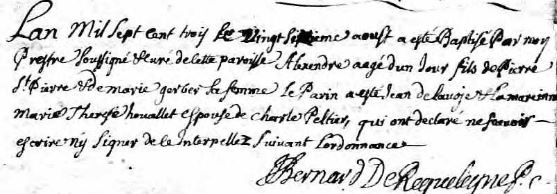 Lan Mil Sept cent trois le vingt septieme aoust a esté Baptisé Par moy
Prestre soussigné & curé de cette paroisse Alexendre aagé d'un Jour fils de Pierre
St Pierre & de marie gerber sa femme le Parin a esté Jean de & La mareinne
Marie Therese houallet espouse de Charle Peltier, qui ont declare ne scavoir
escrire ny signer de ce Interpellez suivant Lordonnance
Bernard De Requeleyne P.